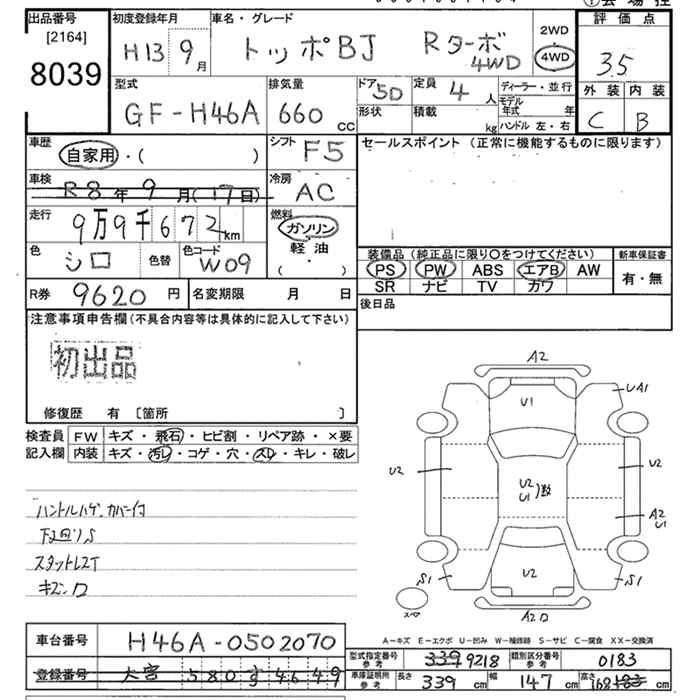 出品番号 初度登録年月 車名・グレード 評価点
[2164]
8039
H13 9月 トッポBJ Rターボ 4WD 2WD 4WD 3.5
型式 排気量 ドア 5D 定員 4人 ディーラー・並行 外装 内装
GF-H46A 660cc 形状 積載 kg モデル年式 年 ハンドル 左・右 C B
車歴 自家用・( ) シフト F5 セールスポイント (正常に機能するものに限ります)
車検 R8年9月(17日) 冷房 AC
走行 9万9千672km 燃料 ガソリン 軽油 ・ ( )
色 シロ 色替 色コード W09 装備品 (純正品に限り〇をつけてください) 新車保証書
PS PW ABS エアB AW 有・無
SR ナビ TV カワ
R券 9620円 名変期限 月 日 後日品
注意事項申告欄 (不具合内容等は具体的に記入して下さい)
初出品
修復歴 有 〔箇所 〕
検査員 FW キズ・飛石・ヒビ割・リペア跡・×要
記入欄 内装 キズ・汚レ・コゲ・穴・スレ・キレ・破レ
ハンドルハゲ カバー付
下回りS
スタットレスT
キズ
A2
U1
UA1
U2
U2
U2
U1
A2
U1
S1
U2
S1
A2
スペア
A-キズ E-エクボ U-凹み W-補修跡 S-サビ C-腐食 XX-交換済
車台番号 H46A-0502070
型式指定番号 参考 339 9218 類別区分番号 参考 0183
登録番号 大宮 580 す 4649
車庫証明所 参考 長さ 339 cm 幅 147 cm 高さ 168 cm